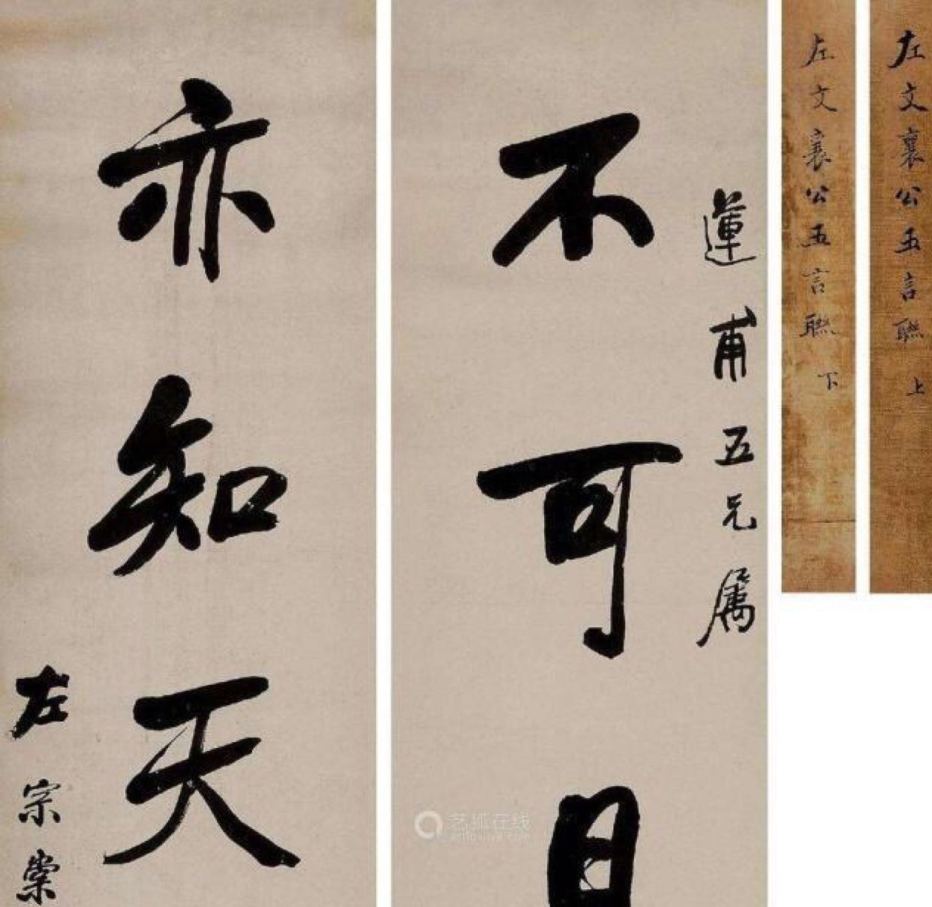 左文襄公五言聯 上
左文襄公五言聯 下
蓮甫五兄属
不可日
亦知天
左宗棠
艺狐在线